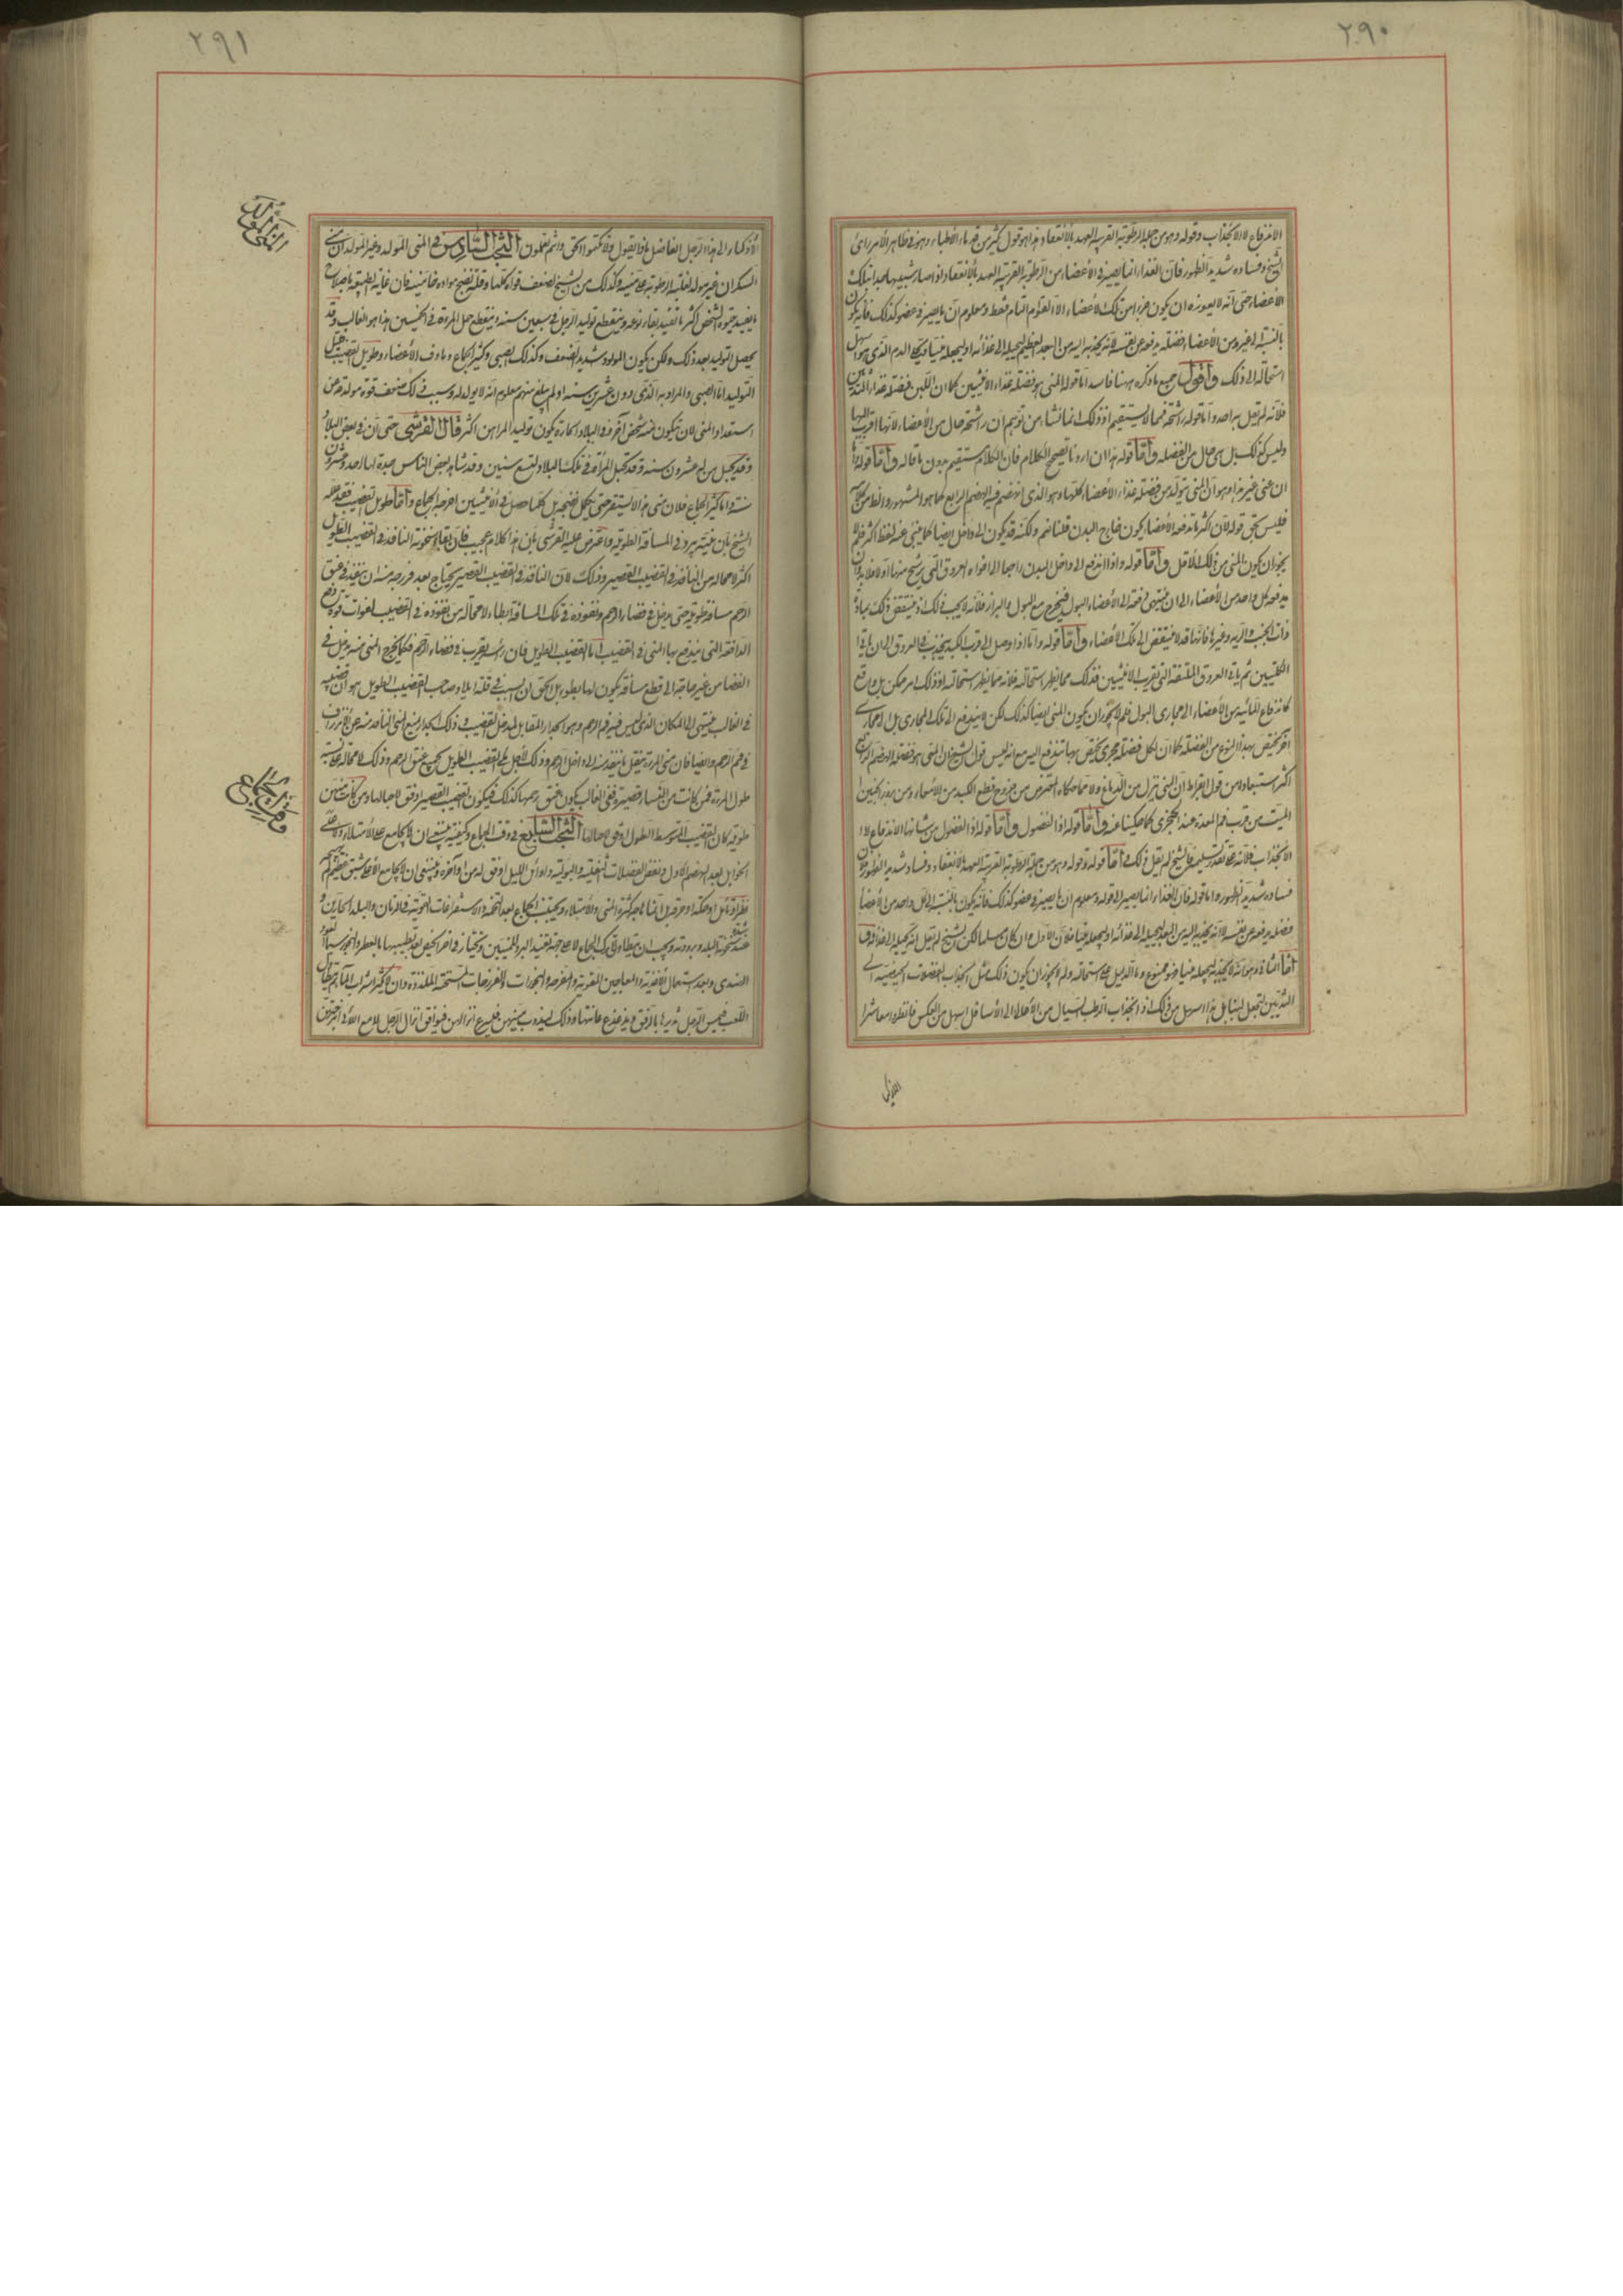 ٢٩٠
الاندفاع لا الانجذاب وقوله وهو من جملة الرطوبة القريبة العهد بالانعقاد هذا هو قول كثير من قدماء الاطباء وهو في ظاهر الامر رأى
الشيخ وفساده شديد الظهور فان الغذاء انما يصير في الاعضاء من الرطوبة القريبة العهد بالانعقاد اذا صار شبيها بها جدا بتلك
الاعضاء حتى انه لا يعوزه ان يكون جزءا من تلك الاعضاء الا القوام التام فقط ومعلوم ان ما يصير في عضو كذلك فانه يكون
بالنسبة الى غيره من الاعضاء فضلة يدفعه عن نفسه لا انه يجذبه اليه من البعد العظيم ليحيله الى غذائه او ليجعله منيا ويترك الدم الذي هو اسهل
استحالة الى ذلك واقول جميع ما ذكره ههنا فاسد اما قوله المنى هو فضلة غذاء الانثيين كما ان اللبن فضلة غذاء الثديين
فلانه لم يقل به احد واما قوله
وليس كذلك بل هي حال من الفضلة واما قوله هذا ان اردنا تصحيح الكلام فان الكلام مستقيم بدون ما قاله واما قوله
ان عنى غير هذا وهو ان المنى يتولد من فضلة غذاء الاعضاء كلها وهو الذى انهضم فيه الهضم الرابع كما هو المشهور
فليس بحق قوله لان اكثر ما تدفعه الاعضاء يكون خارج البدن قلنا نعم ولكنه قد يكون الى داخل ايضا كما ينبى عنه لفظ اكثر فلم لا
يجوز ان يكون المنى من ذلك الاقل واما قوله واذا اندفع الى داخل البدن راجعا الى افواه العروق التى يرشح منها اولا فلا بد وان
يدفعه كل واحد من الاعضاء الى ان ينتهى دفعه الى الاعضاء البول فيخرج مع البول والبراز فلانه لا يجب ذلك اذ ينتقض ذلك بمادة
ذات الجنب والرية وغيرها فانها قد لا ينتقض الى تلك الاعضاء واما قوله واما اذا وصل الى قرب الكبد ينجذب في العروق الى ان يأتى
الكليتين ثم يأتى العروق الملتفة التى تقرب الانثيين فذلك مما يظهر استحالته فلانه مما يظهر استحالته اذ ذلك امر ممكن بل واقع
كاندفاع المائية من الاعضاء الى مجارى البول فلم لا يجوز ان يكون المنى ايضا كذلك لكن لا يندفع الى تلك المجارى بل الى مجارى
اخر يختص بهذا النوع من الفضلة كما ان لكل فضلة مجرى يختص بها تندفع اليه مع انه ليس قول الشيخ ان المنى هو فضلة الهضم الرابع
اكثر استبعادا من قول ابقراط ان المنى ينزل من الدماغ ولا مما حكاه المعترض من خروج قطع الكبد من الامعاء ومن بروز الجنين
الميت من قرب فم المعدة عند الحجزى كما حكينا عنه واما قوله اذا الفضول واما قوله اذا الفضول من شانها الاندفاع لا
الانجذاب فلانه على تقدير تسليمه فالشيخ لم يقل ذلك واما قوله وقوله وهو من جملة الرطوبة القريبة العهد بالانعقاد وفساده شديد الظهور فلان
فساده شديد الظهور واما قوله فان الغذاء انما يصير الى قوله ومعلوم ان ما يصير في عضو كذلك فانه يكون بالنسبة الى كل واحد من الاعضاء
فضلة يدفعه عن نفسه لا انه يجذبه اليه من البعد ليحيله الى غذائه او ليجعله منيا فلان الاول وان كان مسلما لكن الشيخ لم يقل انه يحيله الى غذائه
اما الثانى وهو انه لا يجذبه ليجعله منيا فهو ممنوع وما الدليل على استحالته ولم لا يجوز ان يكون ذلك مثل انجذاب الفضلات الحيضية الى
الثديين لتجعل لبنا بل هذا اسهل من ذلك اذ انجذاب الرطب السيال من الاعلى الى الاسافل اسهل من العكس فانظروا معاشر
الاذكياء
٢٩١
الاذكياء الى هذا الرجل الفاضل ماذا يقول ولا تكتموا الحق وانتم تعلمون البحث السادس في المنى المولد وغير المولد ان منى
السكران غير مولد لغلبة الرطوبة على منيه وكذلك من الشيخ لضعف قواه كلها وقلة نضج مواده
ما يفيد حيوة الشخص اكثر ما تفيد بقاء نوعه وينقطع توليد الرجل في سبعين سنة وينقطع حبل المرأة في الخمسين هذا هو الغالب وقد
يحصل التوليد بعد ذلك ولكن يكون المولود شديد الضعف وكذلك الصبى وكثير الجماع وماوف الاعضاء وطويل القضيب قليل
التوليد اما الصبى والمراد به الذى دون عشرين سنة او لم يبلغ منهم معلوم انه لا يولد له وسبب ذلك ضعف قوة مولدة عن
استعداد المنى لان يتكون منه شخص آخر وفي البلاد الحارة يكون توليد المراهق اكثر قال القرشى حتى ان في بعض البلاد
وقد يحبل من له عشرون سنة وقد تحبل المرأة في تلك البلاد لتسع سنين وقد شاهد بعض الناس جدة لها احد وعشرون
سنة واما كثير الجماع فلان منى هذا لا يستقر حتى يكمل نضجه بل كلما حصل في الانثيين اخرجه الجماع واما طويل القضيب فقد علله
الشيخ بان منيه يبرد في المسافة الطويلة واعترض عليه القرشى بان هذا كلام عجيب فان بقاء سخونة النافذ في القضيب الطويل
اكثر لا محالة من النافذ في القضيب القصير وذلك لان النافذ في القضيب القصير يحتاج بعد خروجه منه ان ينفذ في عنق
الرحم مسافة طويلة حتى يدخل في فضاء الرحم ونفوذه في تلك المسافة ابطأ لا محالة من نفوذه في القضيب لفوات قوة دفع
الدافعة التى يندفع بها المنى في القضيب اما القضيب الطويل فان رأسه يقرب من فضاء الرحم فكما يخرج المنى منه يدخل في
الفضاء من غير حاجة الى قطع مسافة يكون لها طول بل الحق ان السبب في قلة ايلاد صاحب القضيب الطويل هو ان قضيبه
في الغالب ينتهى الى المكان الذى ليس فيه فم الرحم وهو الجدار المقابل لمدخل القضيب وذلك الجدار يمنع المنى النافذ منه عن الانزراق
في فم الرحم وايضا فان منى المرأة يقل ما ينفذ منه الى داخل الرحم وذلك لاجل ملء القضيب الطويل لجميع عنق الرحم وذلك لا محالة
طول المرأة فمن كانت من النساء قصيرة ففي الغالب يكون عنق رحمها كذلك فيكون القضيب القصير اوفق لاحبالها ومن كانت منهن
طويلة كان القضيب المتوسط الطول اوفق لاحبالها البحث السابع في وقت الجماع وكيفيته ينبغى ان لا يجامع على الامتلاء ولا على
الخوا بل بعد الهضم الاول ونفض الفضلات الثفلية والبولية واوائل الليل اوفق له من اواخره وينبغى ان لا يجامع الا على شبق عظيم لم يهيجه
نظر او تأمل او حكة او حرقة بل انما هاجه كثرة المنى والامتلاء ويجتنب الجماع بعد التخمة والاستفراغات القوية في الزمان والبلد الحارين و
عند سخونة البلد وبرودته ويجب ان يتطاول ترك الجماع
الهندى وبعد استعمال الاغذية والمعاجين المقوية والمفرحة والبخورات والفرزجات المسخنة الملذذة وان لا يكثر شراب الماء ثم يطال
اللعب فيمس الرجل ثدييها بالرفق ويدغدغ عانتها وذلك ليذوب منيهن فيسرع انزالهن فيوافق انزال الرجل
وقت الجماع